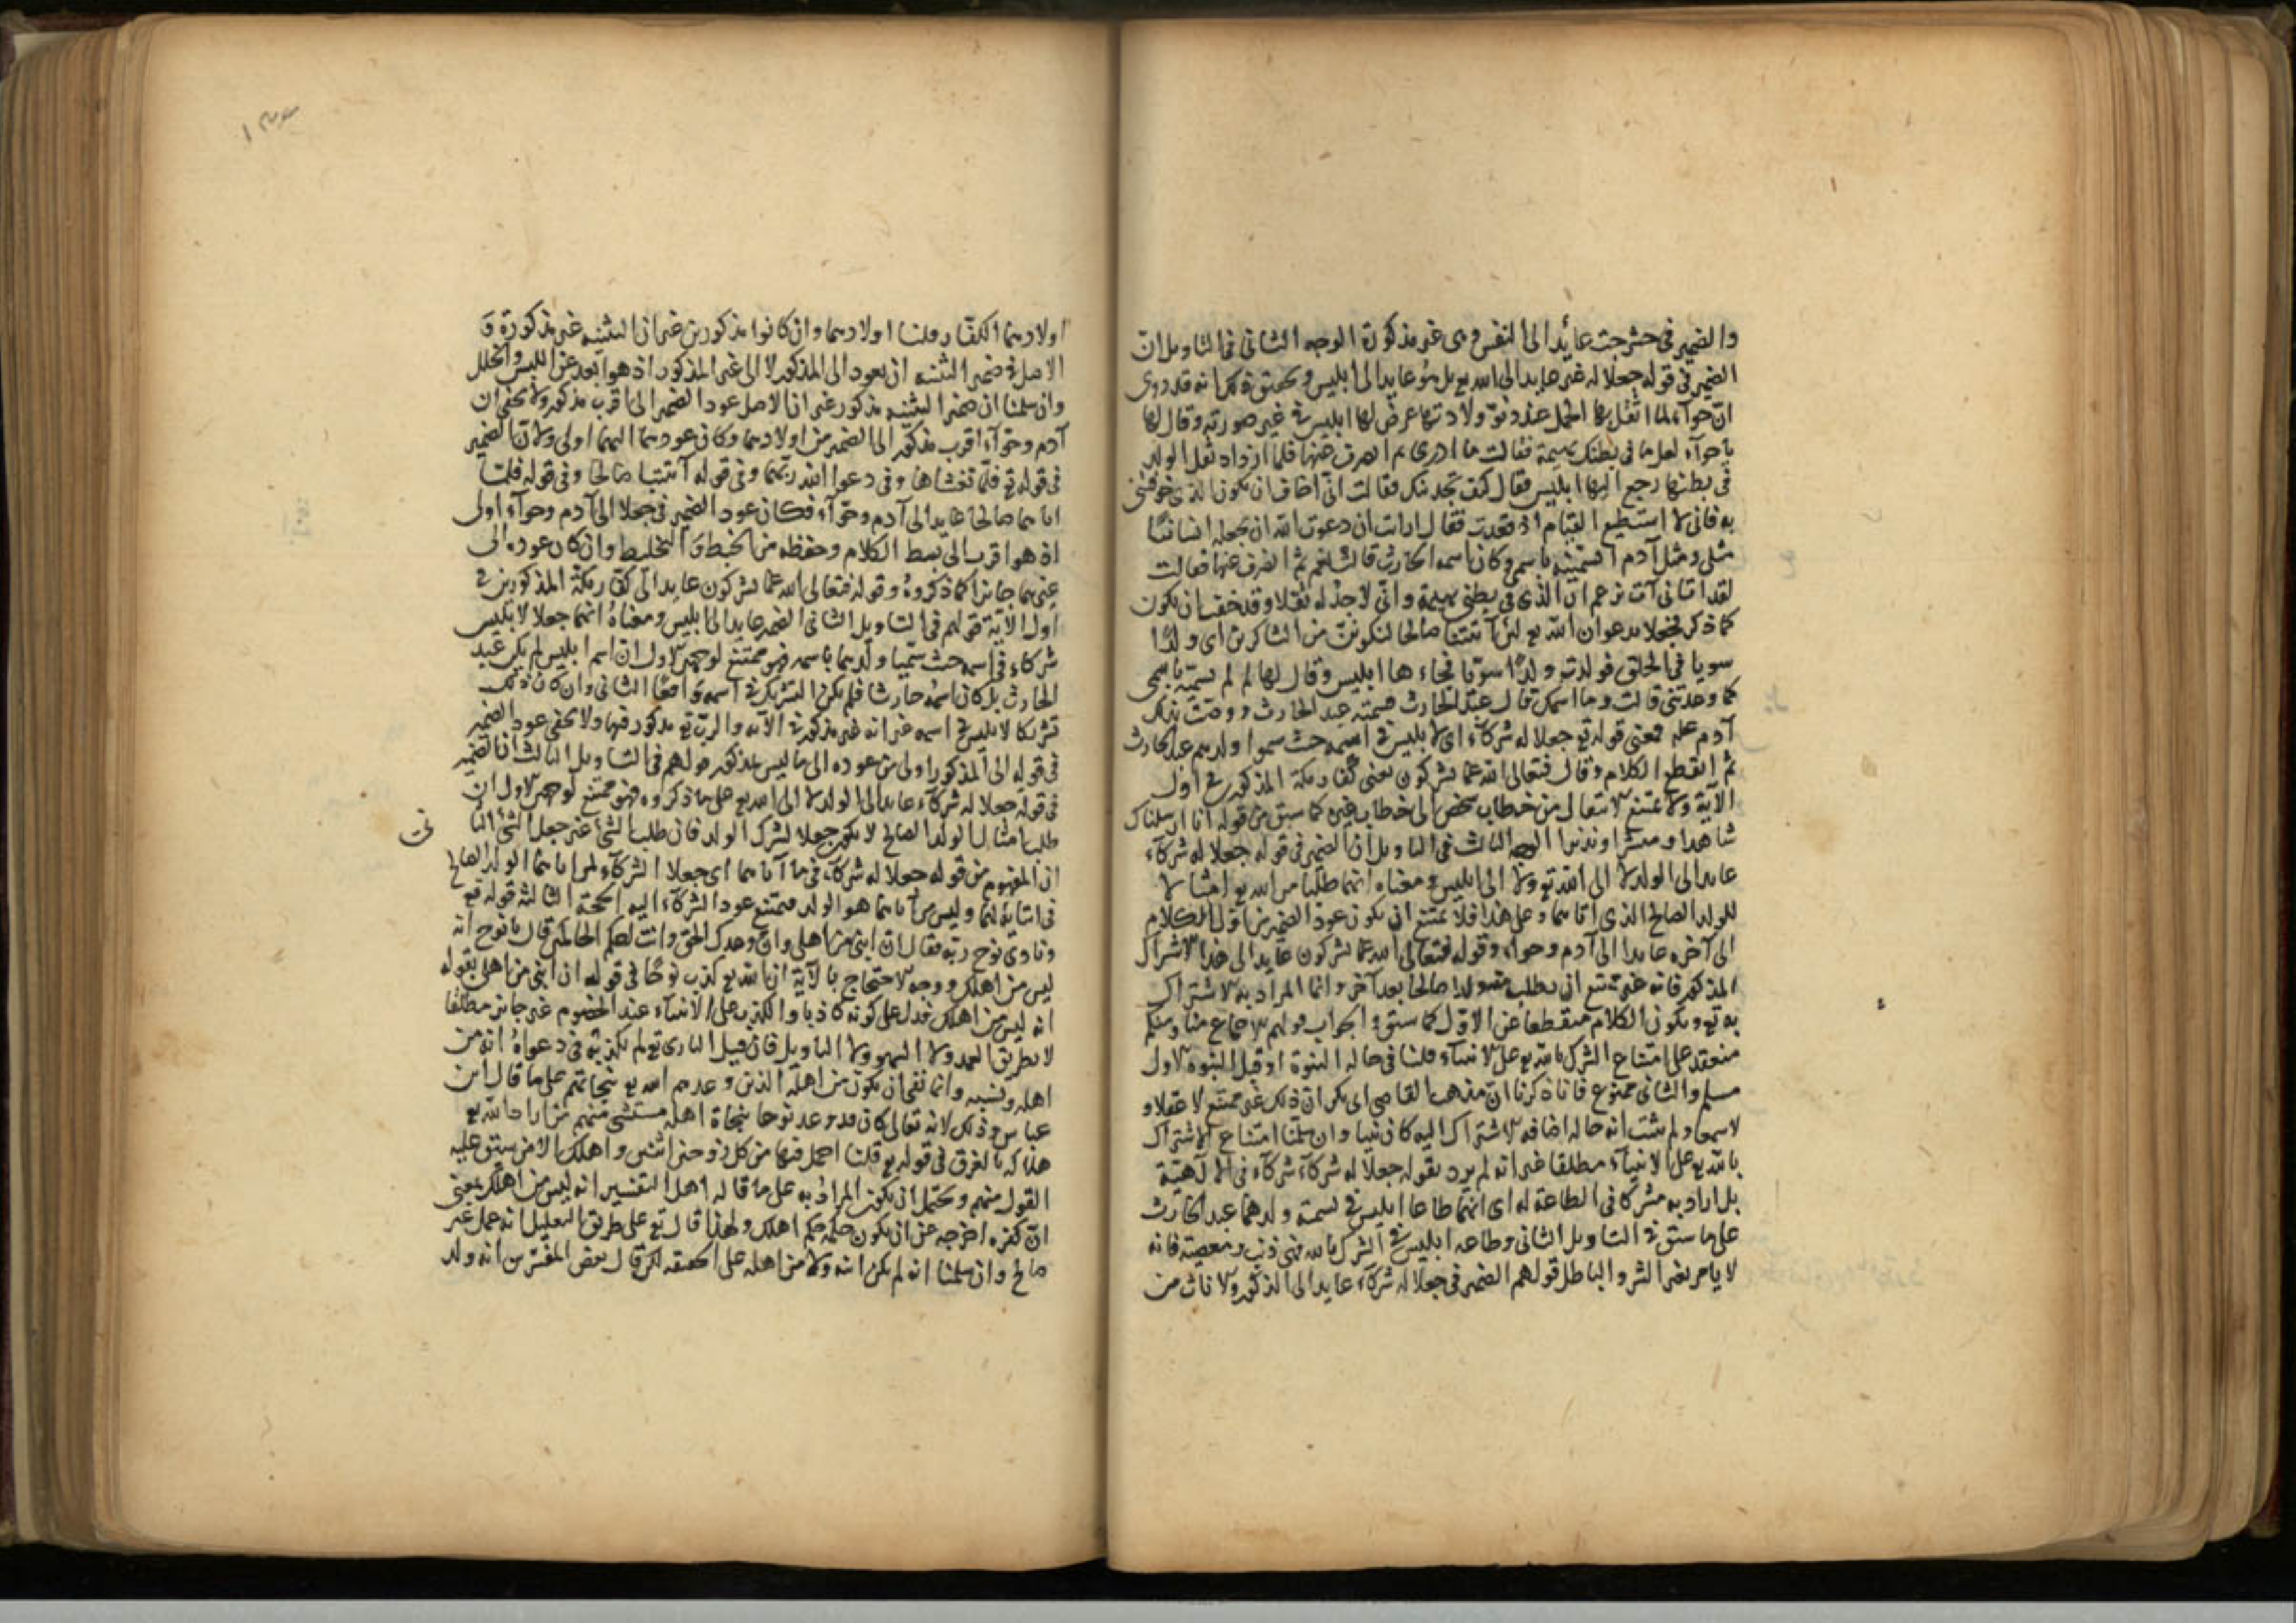 والضمير فى حشرجت عائد الى النفس وهى غير مذكورة الوجه الثانى فى التاويل ان
الضمير فى قوله جعلا له غير عايد الى الله تع بل هو عايد الى ابليس وتحقيقه انه قد روى
ان حوآء لما اثقل بها الحمل عند دنو ولادتها عرض لها ابليس فى غير صورته وقال لها
يا حوآء لعل ما فى بطنك بهيمة فقالت ما ادرى ثم انصرف عنها فلما ازداد ثقل الولد
فى بطنها رجع اليها ابليس فقال كيف تجدينك فقالت انى اخاف ان يكون الذى خوفتنى
به فانى لا استطيع القيام اذ قعدت فقال ارايت ان دعوت الله ان يجعله انسانا
مثلى ومثل آدم اتسميه باسمى وكان اسمه الحارث قالت نعم ثم انصرف عنها فقالت
لقد اتانى آت زعم ان الذى فى بطنى بهيمة وانى لاجد له ثقلا وقد خفت ان يكون
كما ذكر فجعلا يدعوان الله تع لئن آتيتنا صالحا لنكونن من الشاكرين اى ولدًا
سويا فى الخلق فولدت ولدًا سويا فجاءها ابليس وقال لها لم لم تسميه باسمى
كما وعدتنى قالت وما اسمك قال عبد الحارث فسمته عبد الحارث ورضيت بذلك
آدم عليه فمعنى قوله تع جعلا له شركآء اى لابليس فى اسمه حيث سموا ولدهم عبد الحارث
ثم انقطع الكلام وقال فتعالى الله عما يشركون يعنى كفار مكة المذكور فى اول
الآية ولا يمتنع الانتقال من خطاب شخص الى خطاب غيره كما سبق من قوله انا ارسلناك
شاهدا ومبشرا ونذيرا الوجه الثالث فى التاويل ان الضمير فى قوله جعلا له شركآء
عايد الى الولد لا الى الله تع ولا الى ابليس ومعناه انهما طلبا من الله تع امثالا
للولد الصالح الذى اتاهما وعلى هذا فلا يمتنع ان يكون عود الضمير من اول الكلام
الى آخره عايدا الى آدم وحوآء وقوله فتعالى الله عما يشركون عايد الى هذا الاشراك
المذكور فانه غير ممتنع ان يطلب ولدا صالحا بعد آخر وانما المراد به الاشتراك
به تع ويكون الكلام منقطعا عن الاول كما سبق والجواب قولهم الاجماع منا ومنكم
منعقد على امتناع الشرك بالله تع على الانبيآء قلنا فى حالة النبوة او قبل النبوة الاول
مسلم والثانى ممنوع فانا ذكرنا ان مذهب القاضى ابى بكر ان ذلك غير ممتنع لا عقلا و
لا سمعا ولم يثبت انه حالة اضافه الاشتراك اليه كان نبيا وان سلمنا امتناع الاشتراك
بالله تع على الانبيآء مطلقا غير انه لم يرد بقوله جعلا له شركآء شركآء فى الالهية
بل اراد به مشركا فى الطاعة له اى انهما طاعا ابليس فى تسمية ولدهما عبد الحارث
على ما سبق فى التاويل الثانى وطاعه ابليس فى الشرك بالله فهى ذنب ومعصية فانه
لا يامر بغير الشر والباطل قولهم الضمير فى جعلا له شركآء عايد الى الذكور والاناث من
اولادهما الكفار قلنا اولادهما وان كانوا مذكورين غير ان التثنيه غير مذكورة و
الاصل فى ضمير التثنيه ان يعود الى المذكور لا الى غير المذكور اذ هو ابعد عن اللبس والخلل
وان سلمنا ان ضمير التثنيه مذكور غير ان الاصل عود الضمير الى اقرب مذكور ولا يخفى ان
آدم وحوآء اقرب مذكور الى الضمير من اولادهما وكان عودهما اليهما اولى ولان الضمير
فى قوله تع فلما تغشاها وفى دعوا الله ربهما وفى قوله آتيتنا صالحا وفى قوله فلما
اتاهما صالحا عايد الى آدم وحوآء فكان عود الضمير فى جعلا الى آدم وحوآء اولى
اذ هو اقرب الى بسط الكلام وحفظه من الخبط والتخليط وان كان عوده الى
غيرهما جائزا كما ذكروه وقوله فتعالى الله عما يشركون عايد الى كفار مكة المذكورين فى
اول الآية قولهم فى التاويل الثانى الضمير عايد الى ابليس ومعناه انهما جعلا لابليس
شركاء فى اسمه حيث سميا ولدهما باسمه فهو ممتنع لوجهين الاول ان اسم ابليس لم يكن عبد
الحارث بل كان اسمه حارثا فلم يكن التشريك فى اسمه واقعا الثانى وان كان ذلك
تشريكا لابليس فى اسمه غير انه غير مذكور فى الآية والرب تع مذكور فيها ولا يخفى عود الضمير
فى قوله الى المذكور اولى من عوده الى ما ليس بمذكور قولهم فى التاويل الثالث ان الضمير
فى قوله جعلا له شركآء عايد الى الولد لا الى الله تع على ما ذكروه فهو ممتنع لوجهين الاول ان
طلب امثال الولد الصالح لا يكون جعلا لشرك الولد فان طلب الشئ غير جعل الشئ الثا
نى
ان المفهوم من قوله جعلا له شركآء فيما آتاهما اى جعلا الشركآء لمن اتاهما الولد الصالح
فى اتيانه لهما وليس من آتاهما هو الولد فيمتنع عود الشركآء اليه الحجة الثالثة قوله تع
ونادى نوح ربه فقال ان ابنى من اهلى وان وعدك الحق وانت احكم الحاكمين قال يا نوح انه
ليس من اهلك ووجه الاحتجاج بالآية ان الله تع كذب نوحًا فى قوله ان ابنى من اهلى بقوله
انه ليس من اهلك فدل على كونه كاذبا والكذب على الانبيآء عند الخصوم غير جائز مطلقا
لا بطريق العمد ولا السهو ولا التاويل فان قيل البارى تع لم يكذبه فى دعواه انه من
اهله ونسبه وانما نفى ان يكون من اهله الذين وعدهم الله تع بنجاتهم على ما قال ابن
عباس وذلك لانه تعالى كان قد وعد نوحا بنجاة اهله مستثنى منهم من اراد الله تع
هلاكه بالغرق فى قوله تع قلنا احمل فيها من كل زوجين اثنين واهلك الا من سبق عليه
القول منهم ويحتمل ان يكون المراد به على ما قاله اهل التفسير انه ليس من اهلك بمعنى
ان كفره اخرجه عن ان يكون حكمه حكم اهلك ولهذا قال تع على طريق التعليل انه عمل غير
صالح وان سلمنا انه لم يكن ابنه ولا من اهله على الحقيقه لكن قال بعض المفسرين انه ولد